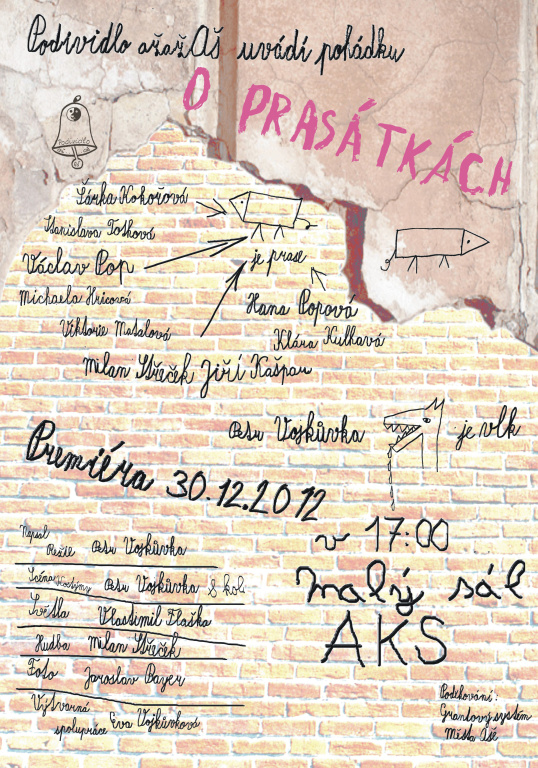 Podividlo ažaž Aš uvádí pohádku
O PRASÁTKÁCH
Podividlo
Šárka Kokořová
Stanislava Totková
Václav Pop
je prase
Michaela Hricová
Hana Popová
Viktorie Matalová
Klára Kulkavá
Milan Střeček Jiří Kašpar
Petr Vojkůvka
je vlk
Premiéra 30.12.2012
v 17:00
malý sál
AKS
Napsal
Režie Petr Vojkůvka
Scéna Kostýmy Petr Vojkůvka & kol.
Světla Vlastimil Flaška
Hudba Milan Střeček
Foto Jaroslav Bayer
Výtvarná
spolupráce Eva Vojkůvková
Poděkování:
Grantový systém
Města Aše